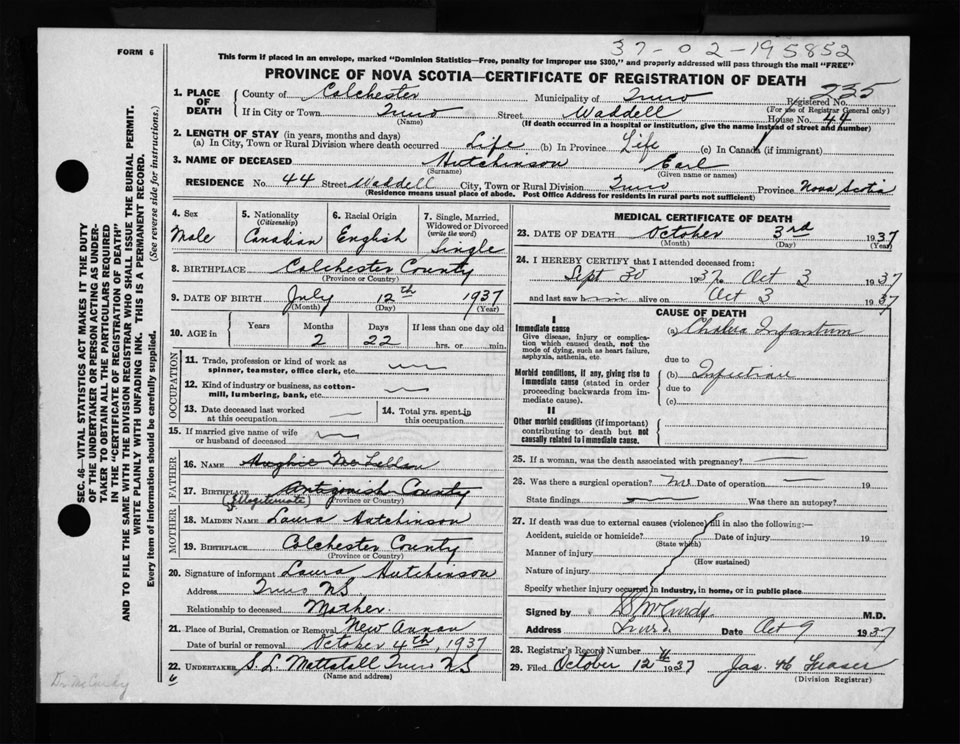 37-02-195852
FORM 6
This form if placed in an envelope, marked "Dominion Statistics—Free, penalty for improper use $300," and properly addressed will pass through the mail "FREE"
PROVINCE OF NOVA SCOTIA—CERTIFICATE OF REGISTRATION OF DEATH
SEC. 46—VITAL STATISTICS ACT MAKES IT THE DUTY
OF THE UNDERTAKER OR PERSON ACTING AS UNDER-
TAKER TO OBTAIN ALL THE PARTICULARS REQUIRED
IN THE "CERTIFICATE OF REGISTRATION OF DEATH"
AND TO FILE THE SAME WITH THE DIVISION REGISTRAR WHO SHALL ISSUE THE BURIAL PERMIT.
WRITE PLAINLY WITH UNFADING INK. THIS IS A PERMANENT RECORD.
Every item of information should be carefully supplied. (See reverse side for instructions.)
1. PLACE OF DEATH County of Colchester Municipality of Truro Registered No. 235
(For use of Registrar General only)
If in City or Town Truro Street Waddell House No. 44
(Name) (If death occurred in a hospital or institution, give the name instead of street and number)
2. LENGTH OF STAY (in years, months and days)
(a) In City, Town or Rural Division where death occurred Life (b) In Province Life (c) In Canada (if immigrant)
3. NAME OF DECEASED Hutchinson Earl
(Surname) (Given name or names)
RESIDENCE No. 44 Street Waddell City, Town or Rural Division Truro Province Nova Scotia
(Residence means usual place of abode. Post Office Address for residents in rural parts not sufficient)
4. Sex Male
5. Nationality (Citizenship) Canadian
6. Racial Origin English
7. Single, Married, Widowed or Divorced (write the word) Single
8. BIRTHPLACE Colchester County
(Province or Country)
9. DATE OF BIRTH July 12th 1937
(Month) (Day) (Year)
10. AGE in Years Months 2 Days 22 If less than one day old hrs. or min.
OCCUPATION
11. Trade, profession or kind of work as spinner, teamster, office clerk, etc.
12. Kind of industry or business, as cotton-mill, lumbering, bank, etc.
13. Date deceased last worked at this occupation
14. Total yrs. spent in this occupation
15. If married give name of wife or husband of deceased
FATHER
16. NAME Hughie McLellan
17. BIRTHPLACE Antigonish County
(Illegitimate) (Province or Country)
MOTHER
18. MAIDEN NAME Laura Hutchinson
19. BIRTHPLACE Colchester County
(Province or Country)
20. Signature of informant Laura Hutchinson
Address Truro NS
Relationship to deceased Mother
21. Place of Burial, Cremation or Removal New Annan
Date of burial or removal October 4th, 1937
22. UNDERTAKER S. L. Mattatall Truro NS
(Name and address)
Dr McCurdy
MEDICAL CERTIFICATE OF DEATH
23. DATE OF DEATH October 3rd 1937
(Month) (Day) (Year)
24. I HEREBY CERTIFY that I attended deceased from:
Sept 30 1937 to Oct 3 1937
and last saw him alive on Oct 3 1937
CAUSE OF DEATH
I
Immediate cause (a) Cholera Infantum
Give disease, injury or complication which caused death, not the mode of dying, such as heart failure, asphyxia, asthenia, etc.
due to
Morbid conditions, if any, giving rise to immediate cause (stated in order proceeding backwards from immediate cause).
(b) Infection
due to
(c)
II
Other morbid conditions (if important) contributing to death but not causally related to immediate cause.
25. If a woman, was the death associated with pregnancy?
26. Was there a surgical operation? no Date of operation 19
State findings Was there an autopsy?
27. If death was due to external causes (violence) fill in also the following:—
Accident, suicide or homicide? Date of injury 19
(State which)
Manner of injury
(How sustained)
Nature of injury
Specify whether injury occurred in industry, in home, or in public place
Signed by McCurdy M.D.
Address Truro Date Oct 9 1937
28. Registrar's Record Number
29. Filed October 12 1937 Jas. H. Fraser
(Division Registrar)